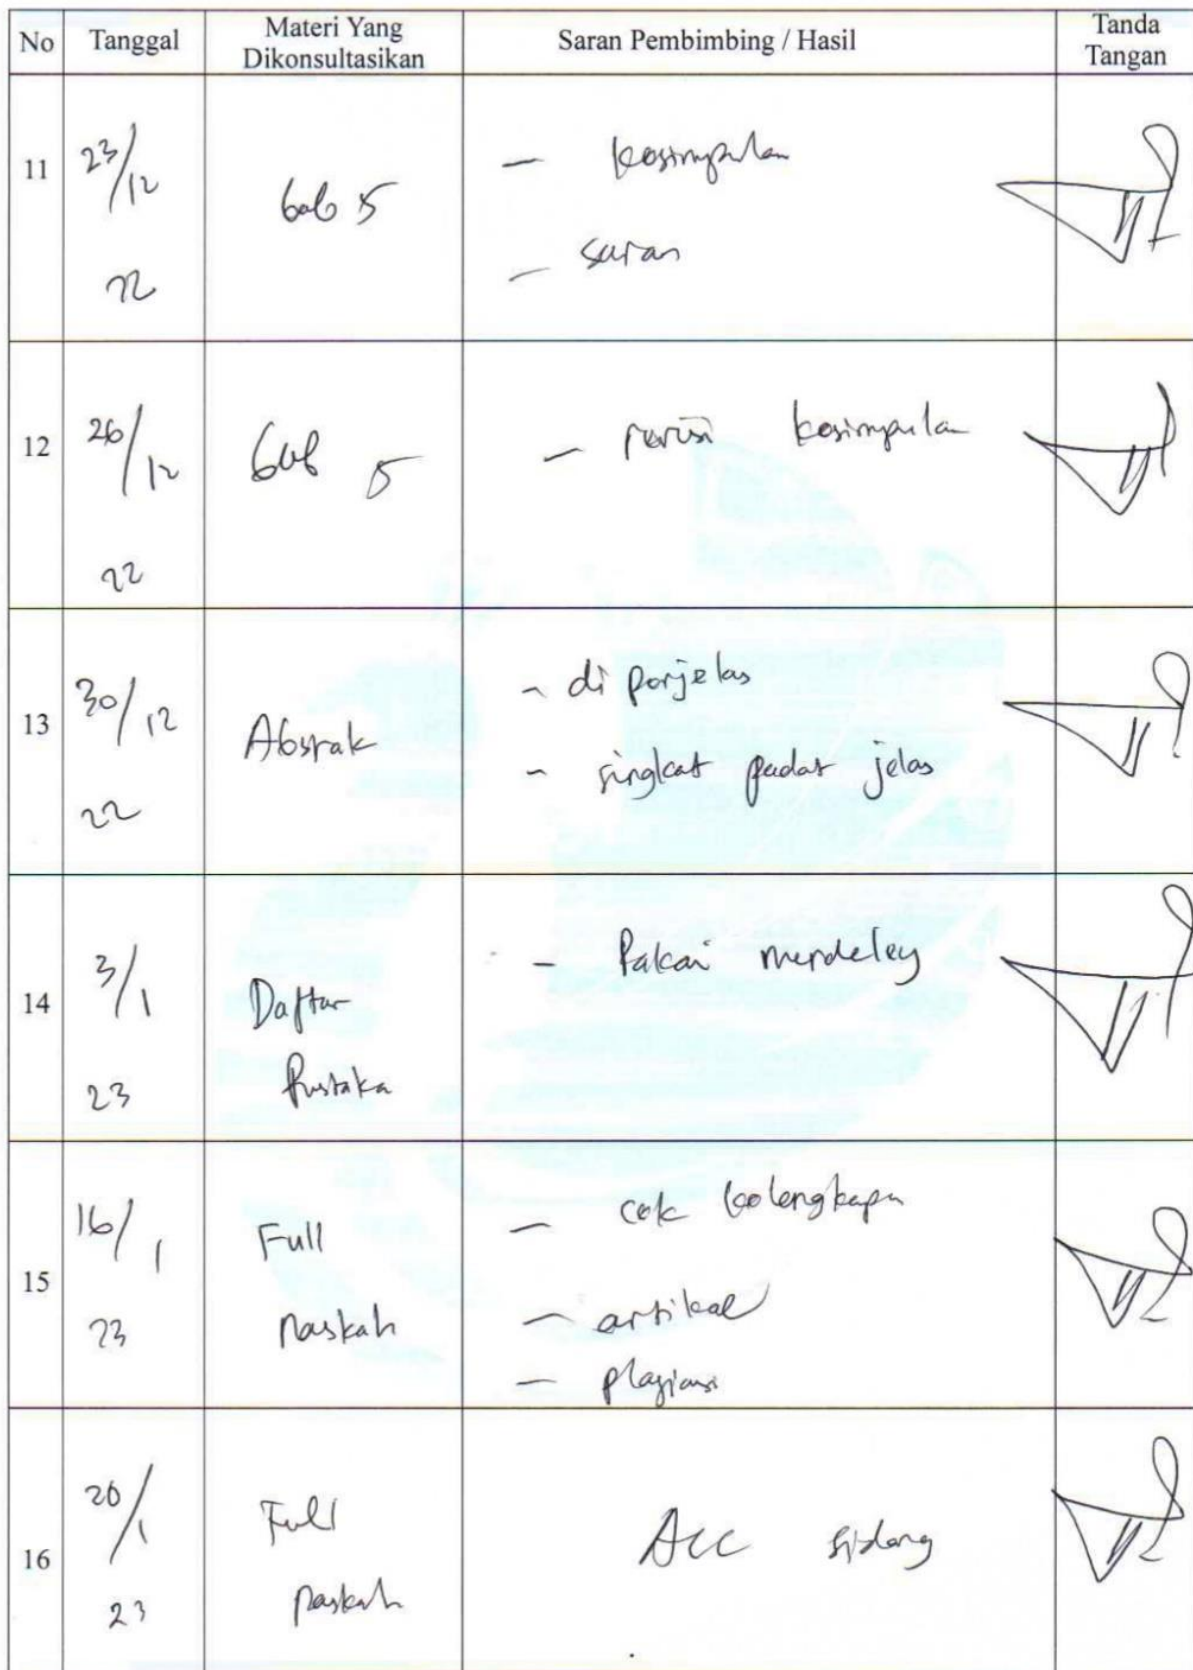 No Tanggal Materi Yang Dikonsultasikan Saran Pembimbing / Hasil Tanda Tangan
11 23/12 22 bab 5 - kesimpulan
- saran
12 26/12 22 bab 5 - revisi kesimpulan
13 30/12 22 Abstrak - di perjelas
- singkat padat jelas
14 3/1 23 Daftar Pustaka - Pakai mendeley
15 16/1 23 Full naskah - cek kelengkapan
- artikel
- plagiasi
16 20/1 23 Full naskah Acc sidang